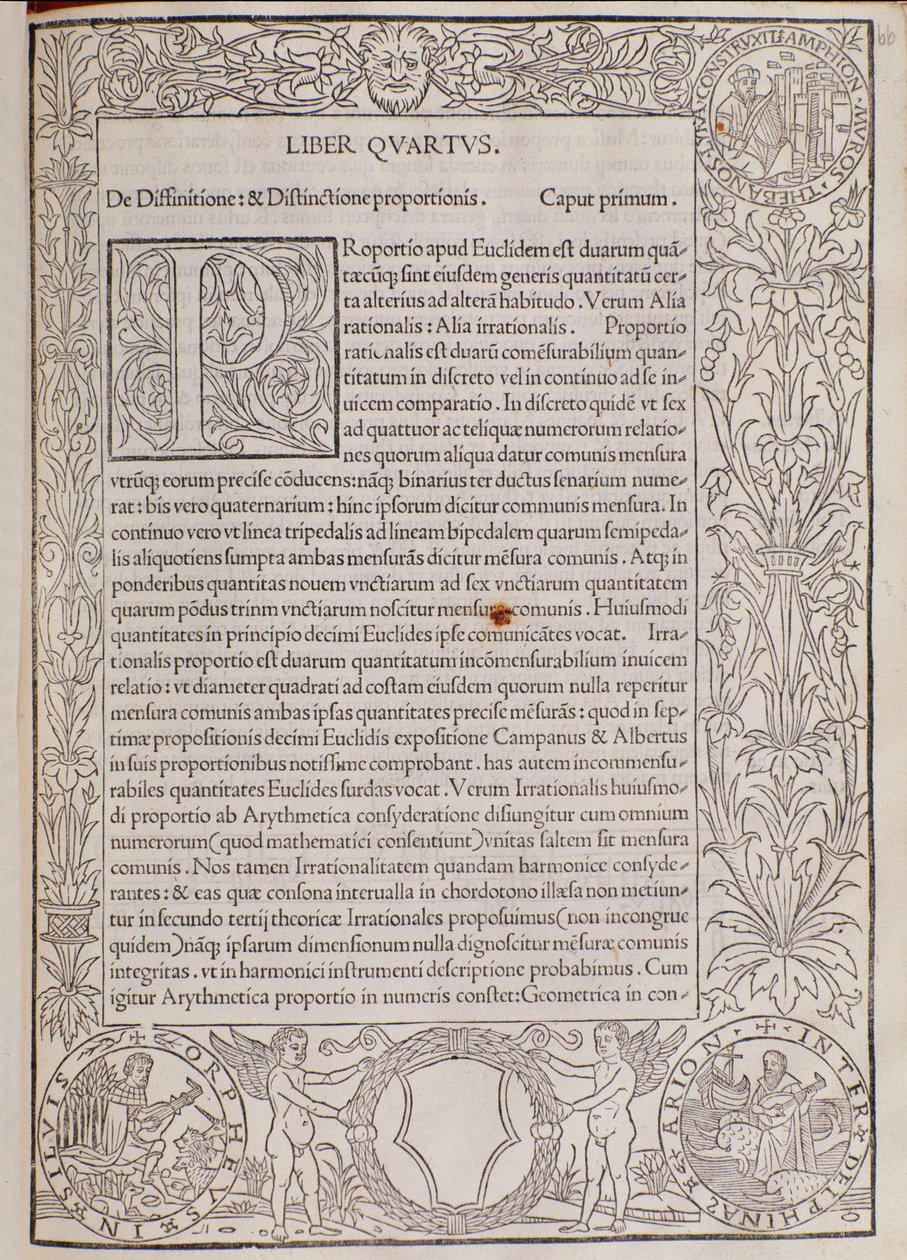 AMPHION · MVROS · THEBANOS · CONSTRVXIT
LIBER QVARTVS.
De Diffinitione: & Distinctione proportionis . Caput primum .
PRoportio apud Euclidem est duarum quã-
tæcũq; sint eiusdem generis quantitatũ cer-
ta alterius ad alterã habitudo . Verum Alia
rationalis : Alia irrationalis . Proportio
rationalis est duarũ comẽsurabilium quan-
titatum in discreto vel in continuo ad se in-
uicem comparatio . In discreto quidẽ vt sex
ad quattuor ac teliquæ numerorum relatio-
nes quorum aliqua datur comunis mensura
vtrũq; eorum precise cõducens: nãq; binarius ter ductus senarium nume-
rat : bis vero quaternarium : hinc ipsorum dicitur communis mensura. In
continuo vero vt linea tripedalis ad lineam bipedalem quarum semipeda-
lis aliquotiens sumpta ambas mensurãs dicitur mẽsura comunis . Atq; in
ponderibus quantitas nouem vnctiarum ad sex vnctiarum quantitatem
quarum põdus trinm vnctiarum noscitur mensura comunis . Huiusmodi
quantitates in principio decimi Euclides ipse comunicãtes vocat . Irra-
tionalis proportio est duarum quantitatum incõmensurabilium inuicem
relatio : vt diameter quadrati ad costam eiusdem quorum nulla reperitur
mensura comunis ambas ipsas quantitates precise mẽsurãs : quod in sep-
timæ propositionis decimi Euclidis expositione Campanus & Albertus
in suis proportionibus notissime comprobant . has autem incommensu-
rabiles quantitates Euclides surdas vocat . Verum Irrationalis huiusmo-
di proportio ab Arythmetica consyderatione disiungitur cum omnium
numerorum(quod mathematici consentiunt)vnitas saltem sit mensura
comunis . Nos tamen Irrationalitatem quandam harmonice consyde-
rantes : & eas quæ consona interualla in chordotono illæsa non metiun-
tur in secundo tertij theoricæ Irrationales proposuimus(non incongrue
quidem)nãq; ipsarum dimensionum nulla dignoscitur mẽsuræ comunis
integritas . vt in harmonici instrumenti descriptione probabimus . Cum
igitur Arythmetica proportio in numeris constet : Geometrica in con-
ORPHEVS IN SILVIS
ARION INTER DELPHINAS